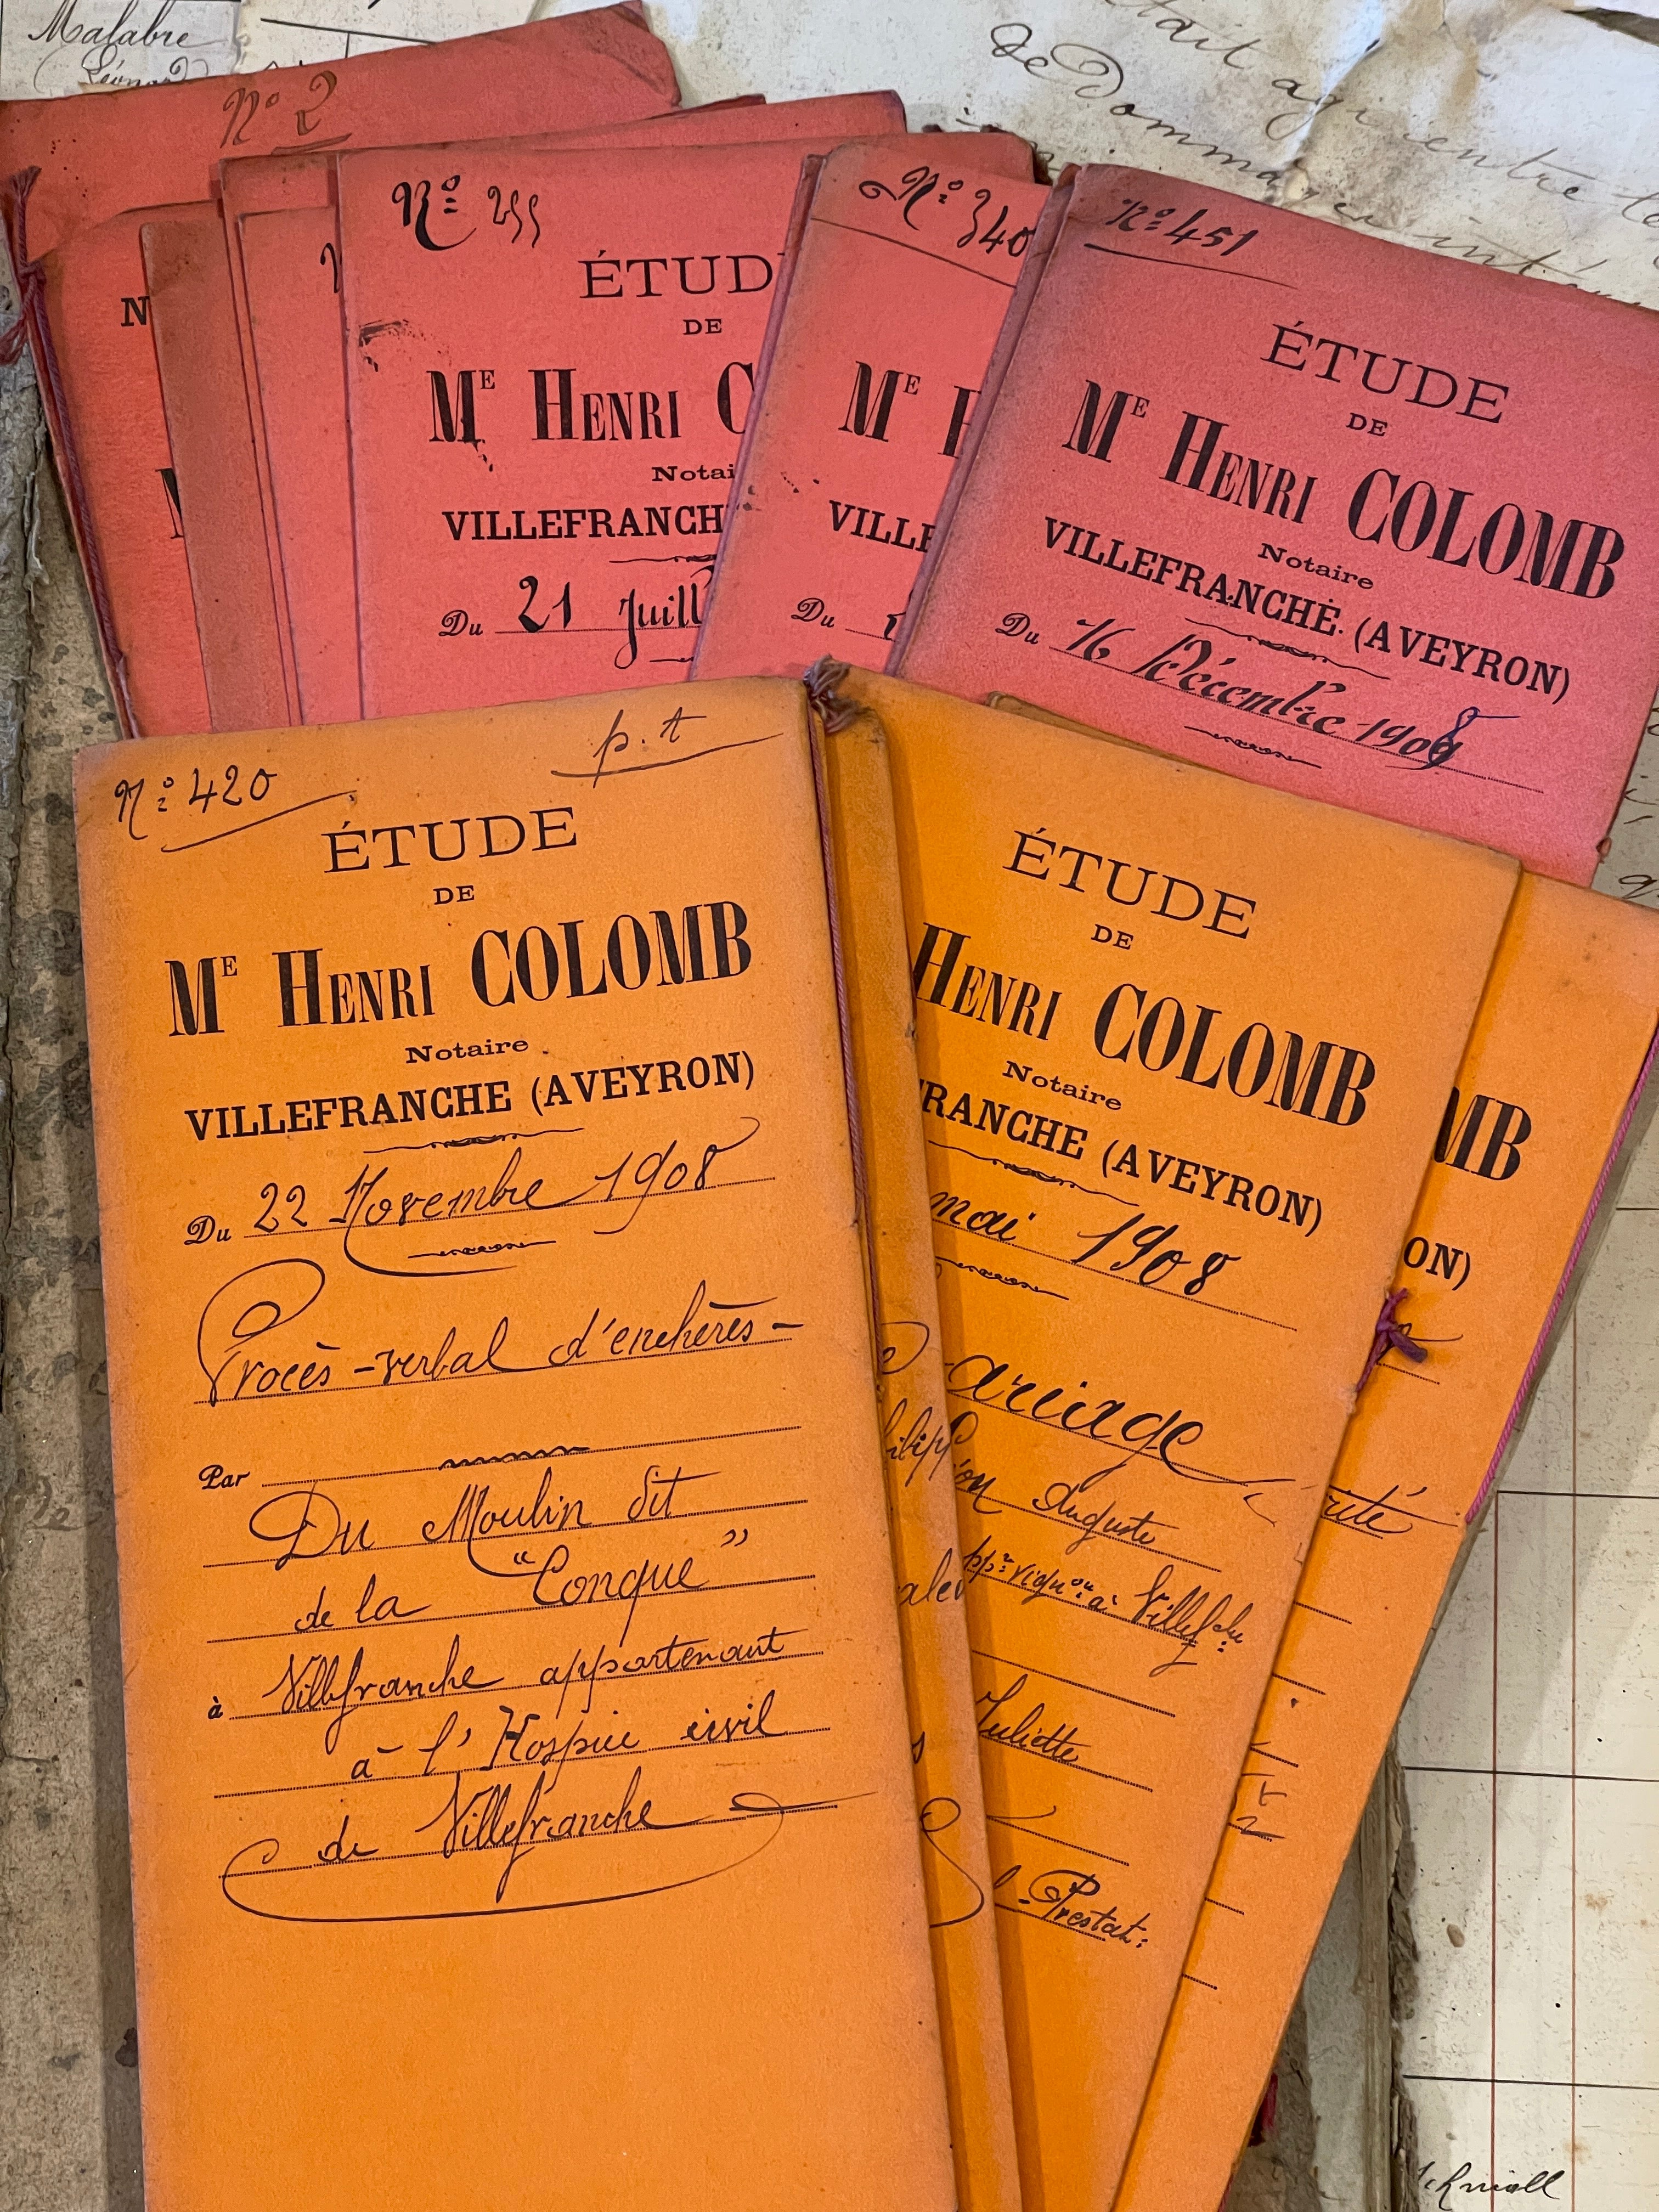 Malabre
Léonard
tait agr entre le
de Dommages inté
N° 2
N
N° 255
ÉTUD
DE
ME HENRI C
Notai
VILLEFRANCH
Du 21 Juill
N° 340
ME H
VILLE
Du
N° 451
ÉTUDE
DE
ME HENRI COLOMB
Notaire
VILLEFRANCHE (AVEYRON)
Du 16 Décembre 1908
N° 420
p. t
ÉTUDE
DE
ME HENRI COLOMB
Notaire
VILLEFRANCHE (AVEYRON)
Du 22 Novembre 1908
Procès-verbal d'enchères-
Par
Du Moulin dit
de la "Conque"
à Villefranche appartenant
à l'Hospice civil
de Villefranche
ÉTUDE
DE
HENRI COLOMB
Notaire
RANCHE (AVEYRON)
mai 1908
ariage
on Auguste
à Villefche
Juliette
Prestat:
MB
ON)
rité